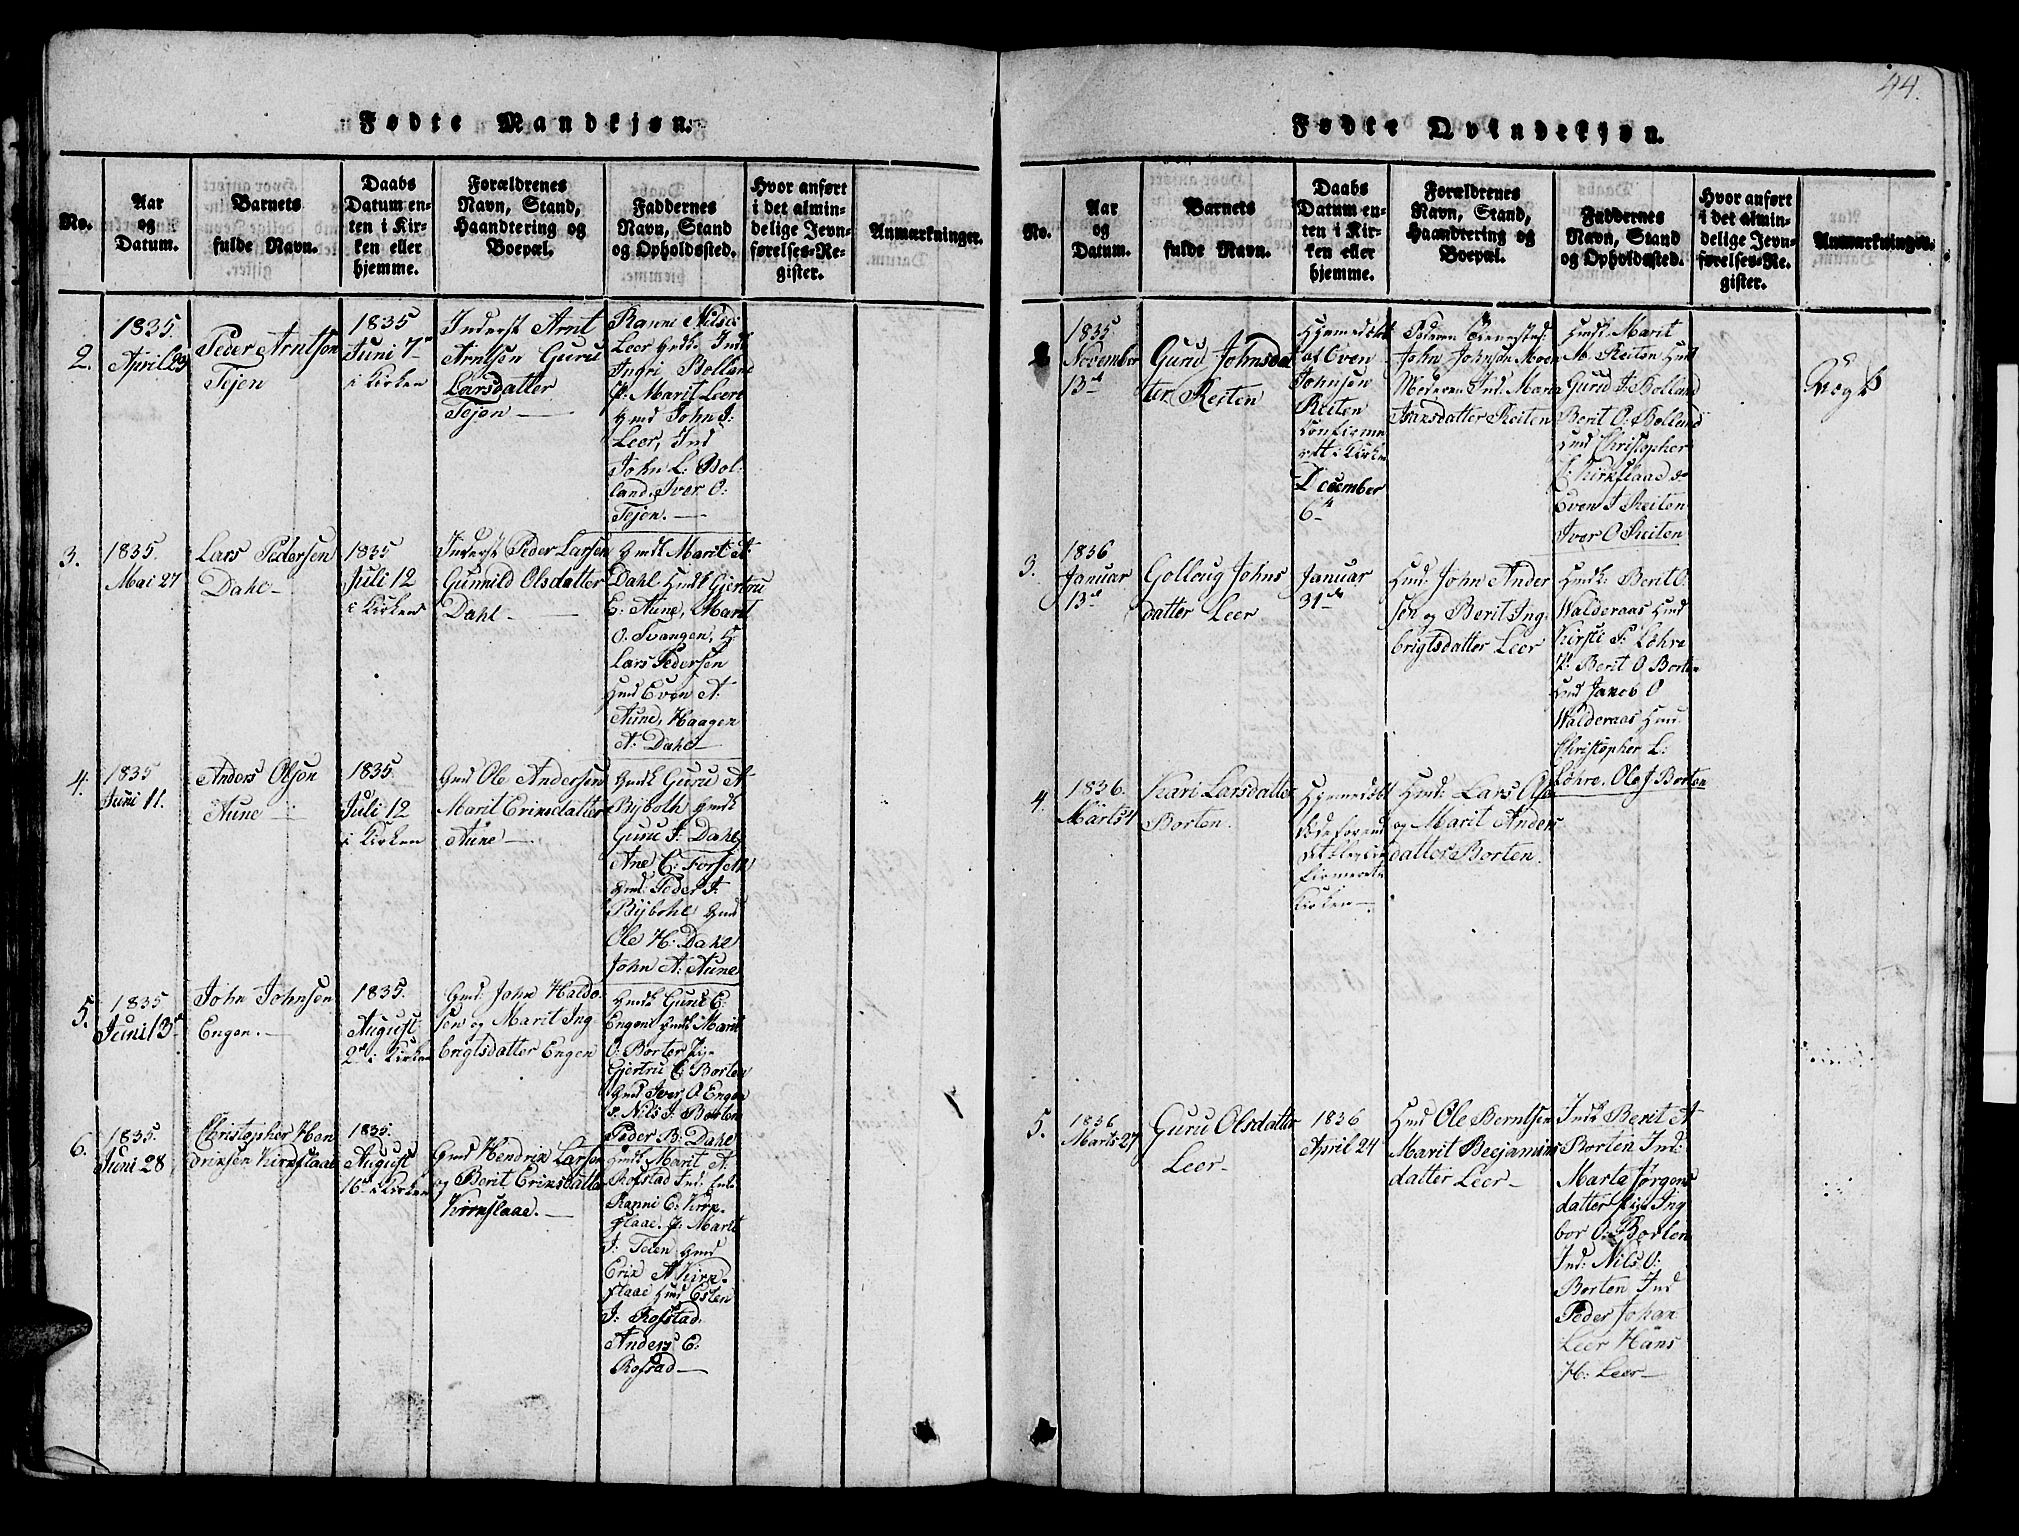 44.
Fødte Mandkjøn.
No.
Aar
og
Datum.
Barnets
fulde Navn.
Daabs
Datum en-
ten i Kir-
ken eller
hjemme.
Forældrenes
Navn, Stand,
Haandtering og
Boepæl.
Faddernes
Navn, Stand
og Opholdssted.
Hvor anført
i det almin-
delige Jevn-
førelses-Re-
gister.
Anmærkninger.
2.
1835.
April 29
Peder Arntson
Tejen
1835
Juni 7de
i Kirken
Inderst Arnt
Arntsen Guru
Larsdatter
Tejen
Ranni Nilsd:
Leer
Ingri Bolland
P. Marit Leer
Gmd John J:
Leer, Ind
John L: Bol-
land, Iver O:
Tejen.
3.
1835.
Mai 27
Lars Pedersen
Dahl
1835
Juli 12
i Kirken
Inderst Peder Larsen
Gunnild Olsdatter
Dahl
Gmdk Marit A:
Dahl Gmdk Gjertru
E: Aune, Marit
O: Svangen,
Lars Pedersen
Gmd Even A:
Aune, Haagen
A: Dahl
4.
1835
Juni 11.
Anders Olson
Aune
1835.
Juli 12
i Kirken
Gmd Ole Andersen
Marit Erixsdatter
Aune
Gmdk Guru A:
Byboth Gmdk
Guru J: Dahl
Ane C: Forseth
Gmd: Peder J:
Bybohl Gmd
Ole H: Dahl
John A: Aune
5.
1835
Juni 13de
John Johnsen
Engen.
1835.
August
2den i Kirken
Gmd: John Haldo
sen og Marit Ing-
brigtsdatter Engen
Gmdk Guru E:
Engen Gmdk Marit
O: Borten Pige
Gjertru E: Borten
Gmd Iver O Engen
Nils J: Borten
Peder B: Dahl
6.
1835.
Juni 28
Christopher Hen
drixsen Kirxflaae
1835.
August
16de i Kirken
Gmd Hendrix Larsen
og Berit Erixsdatter
Kirxflaae.
Gmdk Marit A:
Rofstad Ind:
Ranni E: Kirx-
flaae. P: Marit
J: Teien Gmd
Erix A Kirx-
flaae Gmd Esten
J: Rofstad.
Anders E:
Rofstad
Fødte Qvindekjøn.
No.
Aar
og
Datum.
Barnets
fulde Navn.
Daabs
Datum en-
ten i Kir-
ken eller
hjemme.
Forældrenes
Navn, Stand,
Haandtering og
Boepæl.
Faddernes
Navn, Stand
og Opholdssted.
Hvor anført
i det almin-
delige Jevn-
førelses-Re-
gister.
Anmærkninger.
1835
November
13de
Gurid Johnsdat
ter Reiten
Hjemedøbt
af Even
Johnsen
Reiten
Confirme
rett i Kirken
December
6te
Faderen
John Johnsen Moen
Moderen Ind: Maria
Hansdatter Reiten
Gmdk: Marit
M. Reiten Gmd
Gurid J: Bolland
Berit O: Bolland
Gmd Christopher
Kirkflaae
Even J Reiten
Iver O Reiten
3.
1836
Januar
13de
Golloug Johns
datter Leer
Januar
31de
Gmd: John Ander
sen og Berit Ing-
brigtsdatter Leer
Gmdk: Berit O:
Walderaas Gmd
Kirsti P: Løhre
P: Berit O Borten
Gmd Janeb O
Walderaas Gmd
Christopher L:
Løhre. Ole J Borten
4.
1836.
Märts 4
Kari Larsdatter
Borten.
Hjemedøbt
Kirken
Gmd: Lars Olsen
og Marit Anders
datter Borten.
5.
1836
Marts 27
Guru Olsdatter
Leer
1836
April 24
Gmd Ole Berntsen
Marit Beejamins
datter Leer
Indk Berit A
Borten Ind:
Marta Jørgens
datter pige Ing
bor O: Borten
Ind: Nils O:
Borten Ind
Peder Johan
Leer Hans
H: Leer